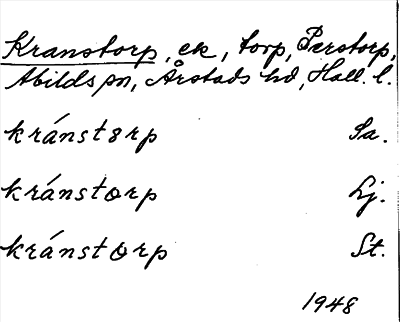 Kranstorp, ek, torp, Perstorp,
Abilds sn, Årstads hd, Hall. l.
kránstɵrp Sa.
kránstorp Lj.
kránstorp St.
1948